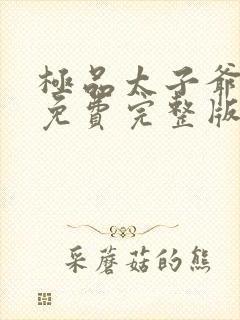 極品太子爺
免費完整版
采蘑菇的熊